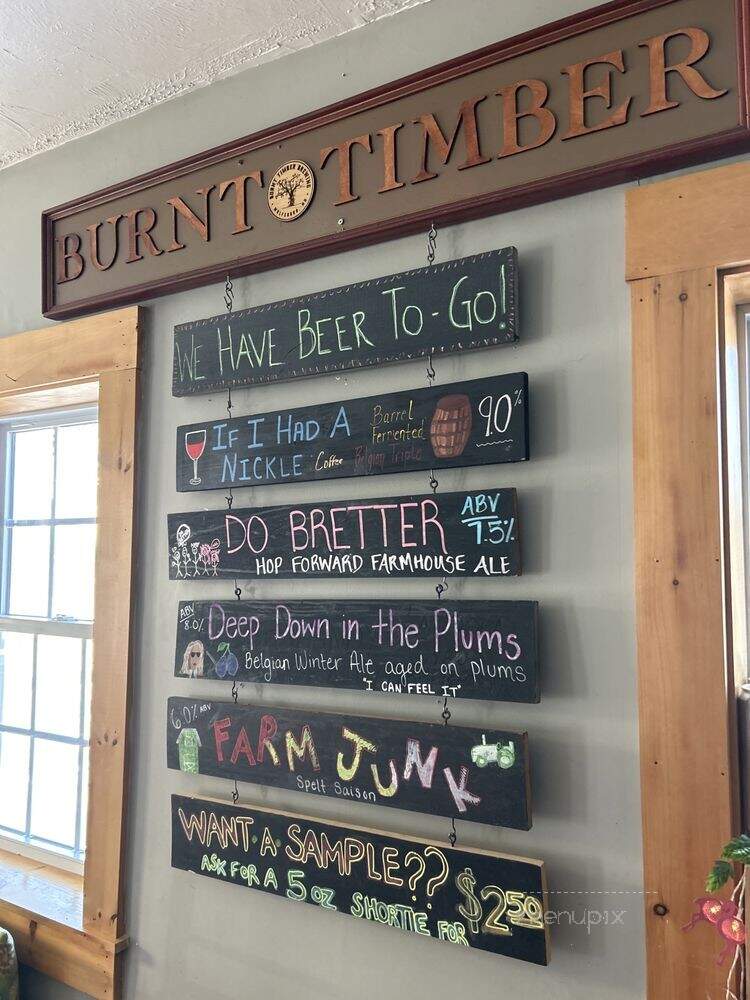 BURNT TIMBER
BURNT TIMBER BREWING
WE HAVE BEER TO-GO!
IF I HAD A
NICKLE
Coffee
Barrel
Fermented
Belgian Triple
9.0%
DO BRETTER
ABV
7.5%
HOP FORWARD FARMHOUSE ALE
ABV
8.0%
Deep Down in the Plums
Belgian Winter Ale aged on plums
"I CAN FEEL IT"
6.0% ABV
FARM JUNK
Spelt Saison
WANT A SAMPLE??
ASK FOR A 5 OZ SHORTIE FOR
$2.50
menupix